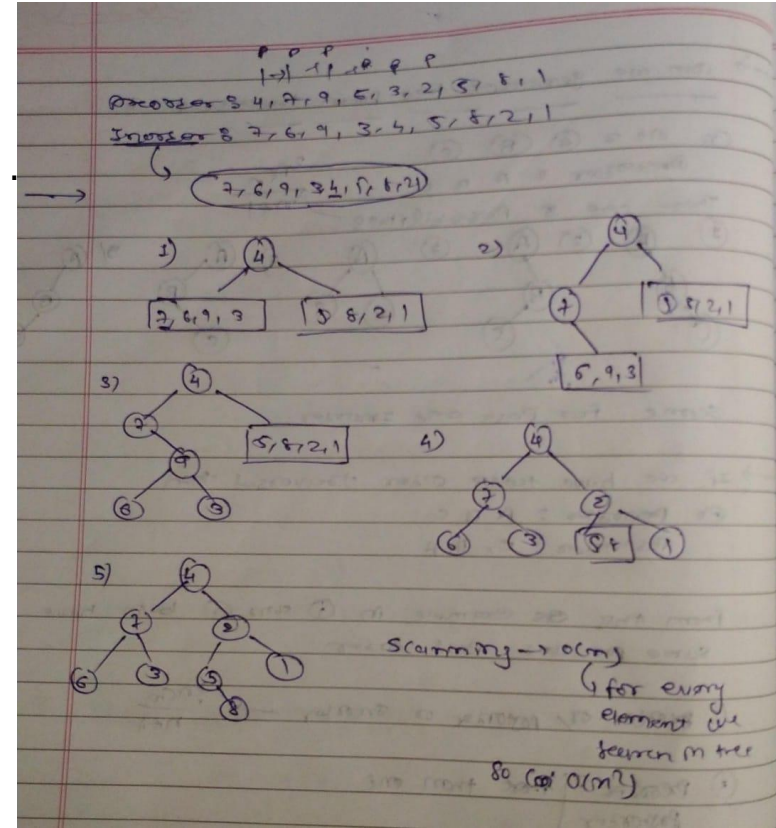 P P P P P P
Preorder : 4, 7, 9, 6, 3, 2, 5, 8, 1
Inorder : 7, 6, 9, 3, 4, 5, 8, 2, 1
7, 6, 9, 3 4, 5, 8, 2, 1
1) 4
7, 6, 9, 3
5 8, 2, 1
2) 4
7
5 8, 2, 1
6, 9, 3
3) 4
7
5, 8, 2, 1
9
6 3
4) 4
7 2
6 3 5 8 1
5) 4
7 2
6 3 5 1
8
Scanning → O(n)
for every
element we
search in tree
So O(n²)